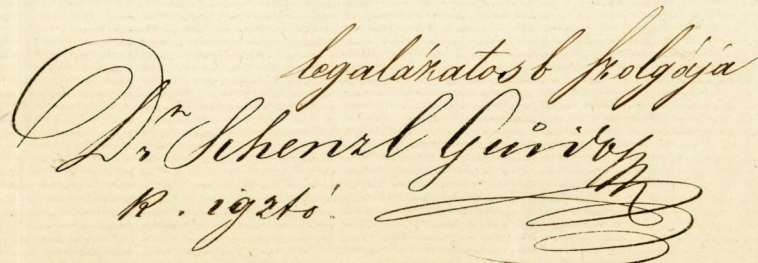 legalázatosb szolgája
Dr. Schenzl Guido
k. igztó